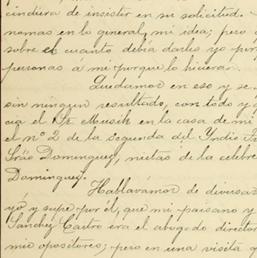 cindiera de insistir en su solicitud.
namas en lo general, mi idea; pero
sobre el cuanto debia darles yo por
personas á mi porque lo hiciera.
Quedamos en eso y se
sin ningun resultado, con todo y
cia el Sr. Musik en la casa de mi
el nº 2 de la segunda del Yndio
Srâs Dominguez, nietas de la celebre
Dominguez.
Hablavámos de diversas
yo y supe por él, que mi paisano y
Sánchez Castro era el abogado director
mis opositores; pero en una visita q